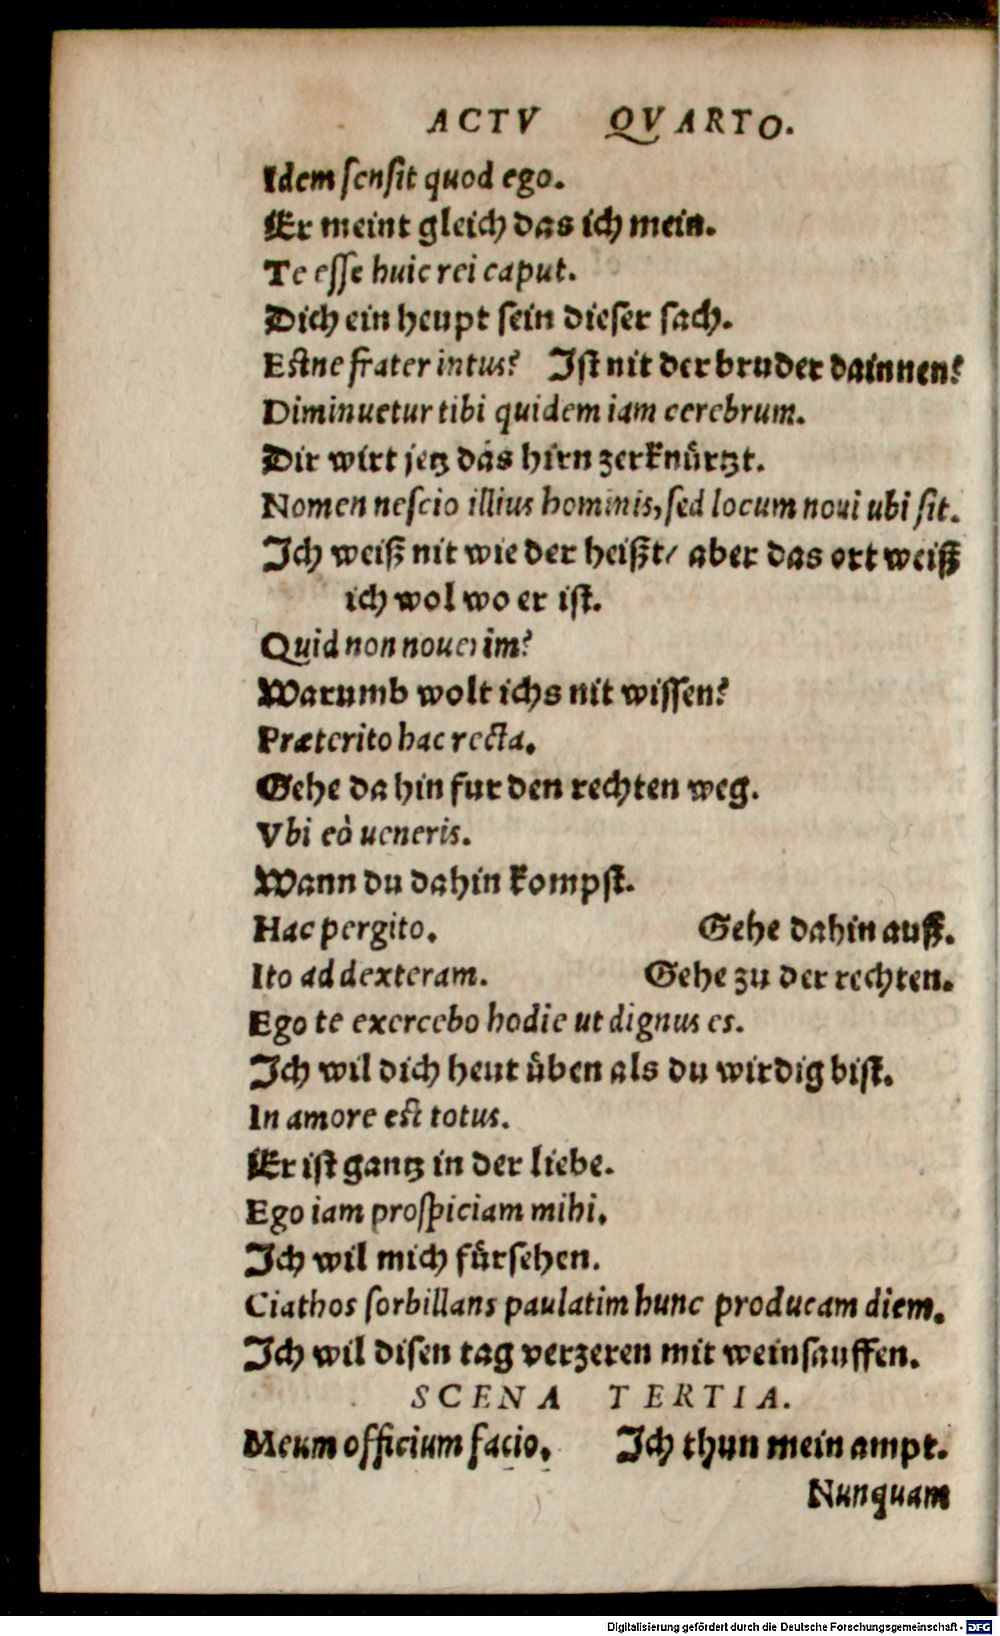 ACTV QVARTO.
Idem sensit quod ego.
Er meint gleich das ich mein.
Te esse huic rei caput.
Dich ein heupt sein dieser sach.
Estne frater intus? Ist nit der bruder dainnen?
Diminuetur tibi quidem iam cerebrum.
Dir wirt jetz das hirn zerknürtzt.
Nomen nescio illius hominis, sed locum noui ubi sit.
Ich weiß nit wie der heißt/ aber das ort weiß
ich wol wo er ist.
Quid non nouerim?
Warumb wolt ichs nit wissen?
Præterito hac recta.
Gehe da hin fur den rechten weg.
Vbi eò ueneris.
Wann du dahin kompst.
Hac pergito. Gehe dahin auff.
Ito ad dexteram. Gehe zu der rechten.
Ego te exercebo hodie ut dignus es.
Ich wil dich heut üben als du wirdig bist.
In amore est totus.
Er ist gantz in der liebe.
Ego iam prospiciam mihi.
Ich wil mich fürsehen.
Ciathos sorbillans paulatim hunc producam diem.
Ich wil disen tag verzeren mit weinsauffen.
SCENA TERTIA.
Meum officium facio. Ich thun mein ampt.
Nunquam
Digitalisierung gefördert durch die Deutsche Forschungsgemeinschaft - DFG